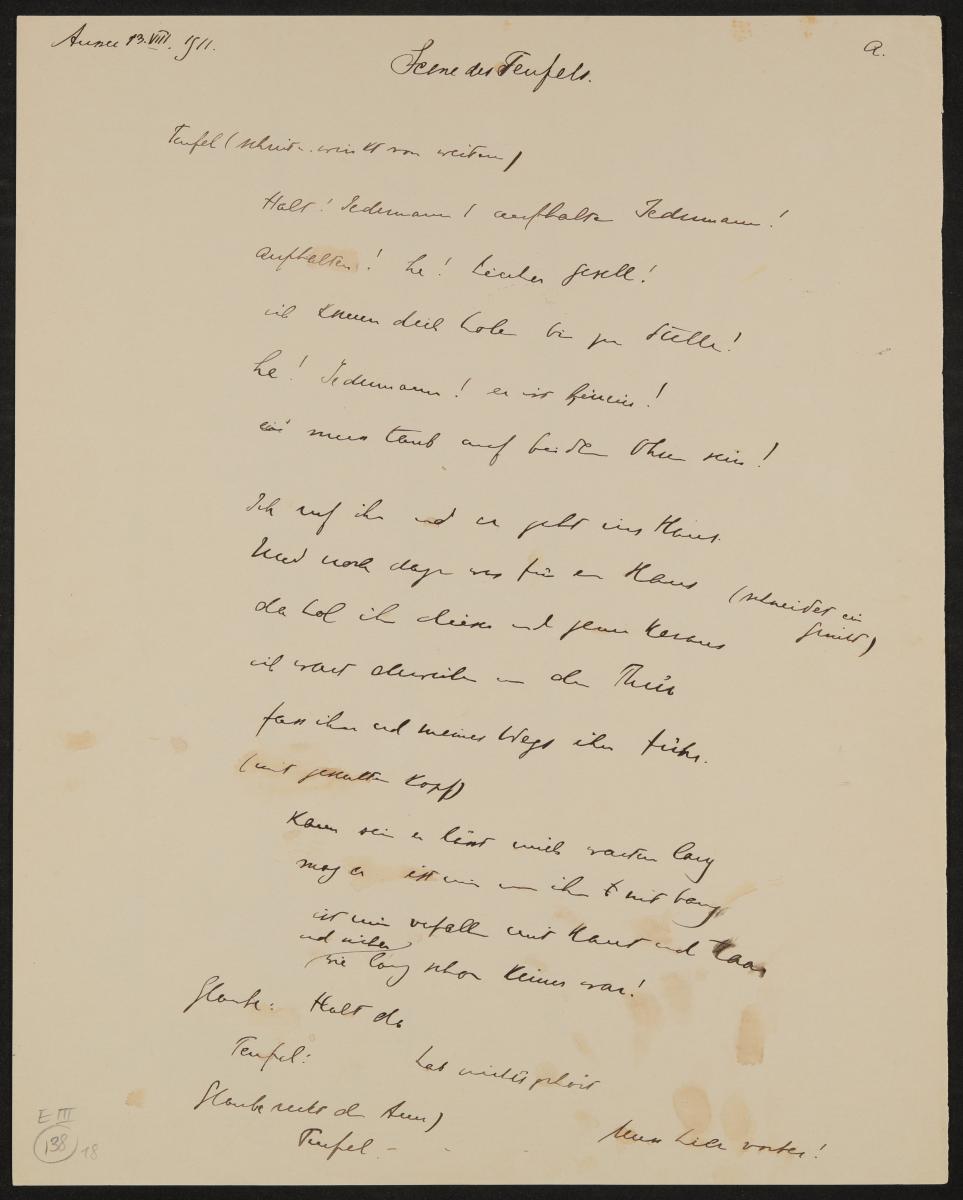 Aussee 13.VIII. 1911.
a.
Scene des Teufels.
Teufel (schreit u. winkt von weitem)
Halt! Jedermann! aufhalten Jedermann!
aufhalten! he! Gesell!
ich komm dich holen bin zur Stelle!
he! Jedermann! er ist hinein!
muss taub auf beiden Ohren sein!
Ich ruf ihn und er geht ins Haus.
Und noch dazu was für ein Haus (schneidet ein
Gesicht)
da hol ihn dieser und jener heraus
ich wart derweilen an der Thür
fass ihn und meines Wegs ihn führ.
(mit Kopf)
Kann sein er lässt mich warten lang
mag er ist mir um ihn nit bang
ist mir verfallen mit Haut und Haar
und sicher
wie lang schon keiner war!
Glaube: Halt da
Teufel: hab nichts gehört
Glaube reckt den Arm)
Teufel. - - - Muss hier vorbei!
E III
138
18